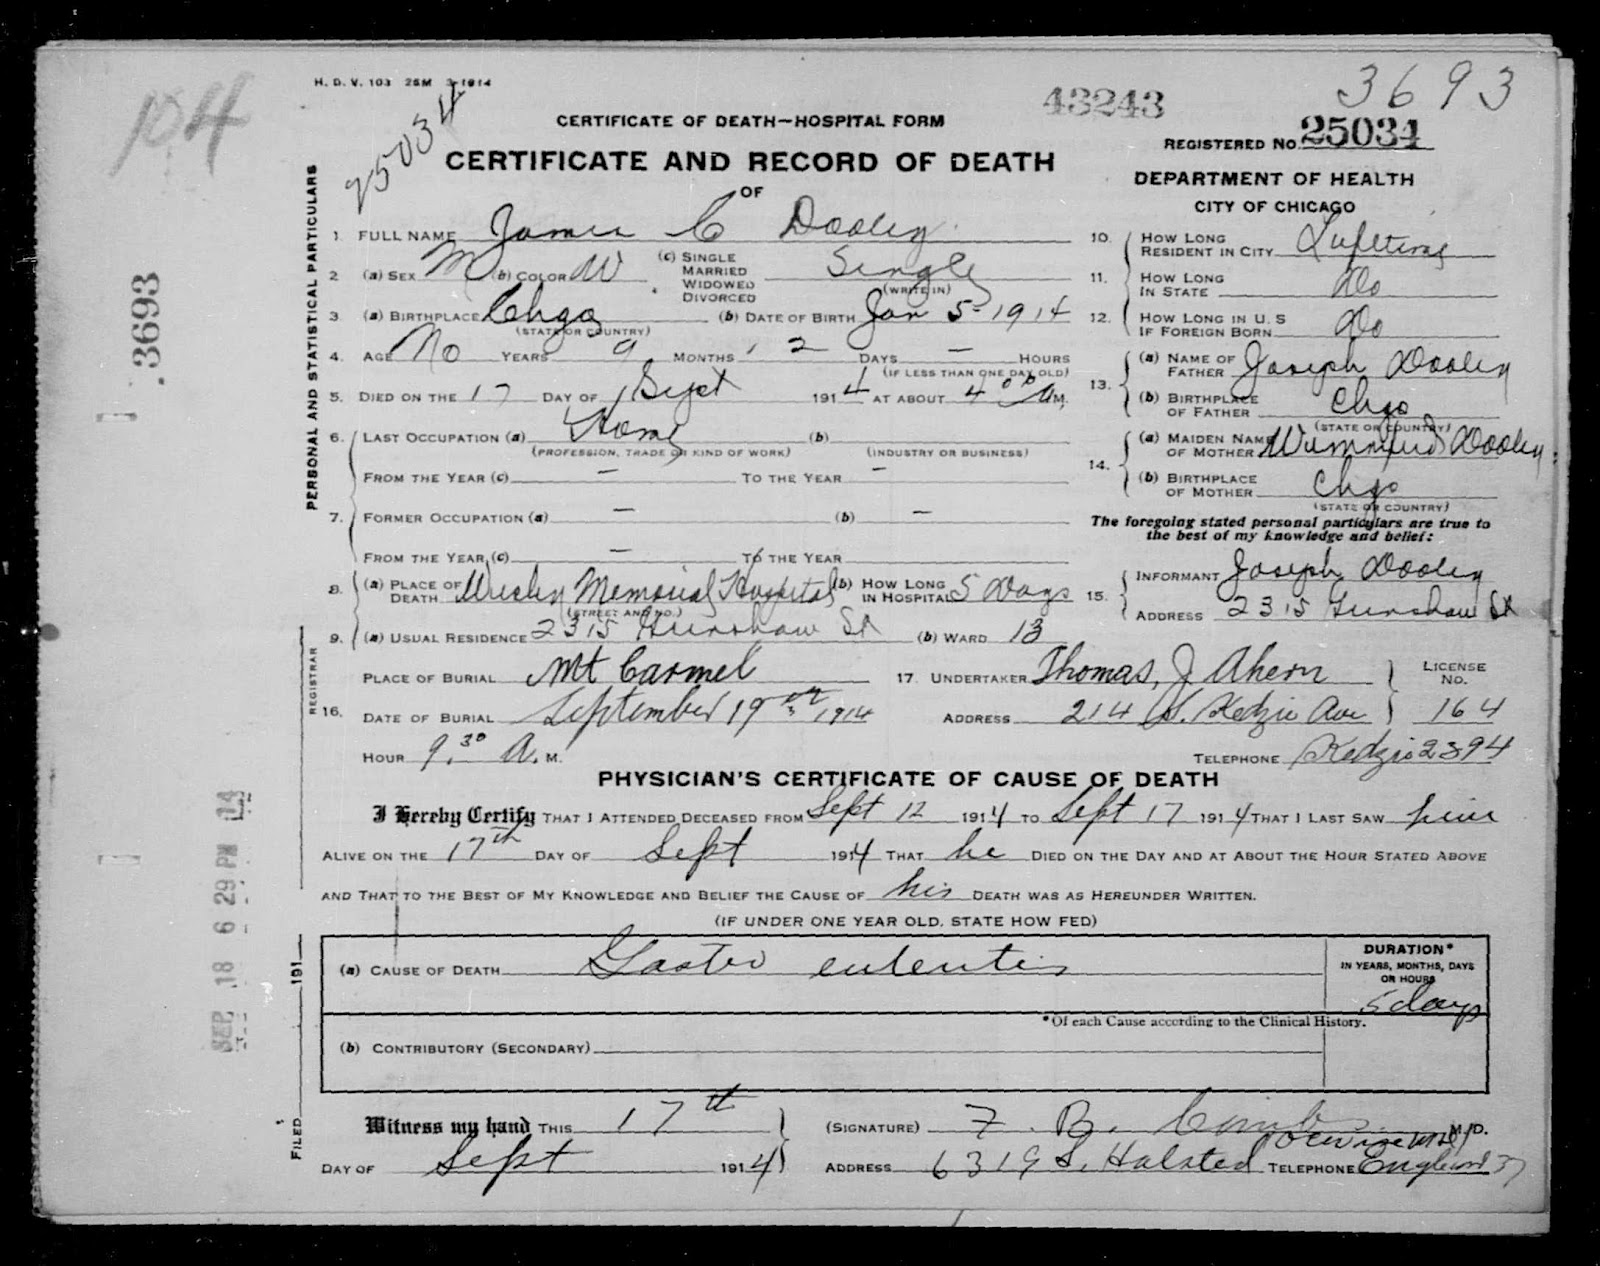 H. D. V. 103 25M 3-1914
104
25034
43243
3693
CERTIFICATE OF DEATH—HOSPITAL FORM
REGISTERED No. 25034
CERTIFICATE AND RECORD OF DEATH
OF
DEPARTMENT OF HEALTH
CITY OF CHICAGO
PERSONAL AND STATISTICAL PARTICULARS
1. FULL NAME James C Dooley
2 (a) SEX M (b) COLOR W (c) SINGLE MARRIED WIDOWED DIVORCED Single
(WRITE IN)
3. (a) BIRTHPLACE Chgo (b) DATE OF BIRTH Jan 5 - 1914
(STATE OR COUNTRY)
4. AGE No YEARS 9 MONTHS 12 DAYS — HOURS
(IF LESS THAN ONE DAY OLD)
5. DIED ON THE 17 DAY OF Sept 1914 AT ABOUT 4 00 A M.
6. LAST OCCUPATION (a) Home (b)
(PROFESSION, TRADE OR KIND OF WORK) (INDUSTRY OR BUSINESS)
FROM THE YEAR (c) — TO THE YEAR —
7. FORMER OCCUPATION (a) — (b) —
FROM THE YEAR (c) — TO THE YEAR
8. (a) PLACE OF DEATH Wesley Memorial Hospital (b) HOW LONG IN HOSPITAL 5 Days
(STREET AND NO.)
9. (a) USUAL RESIDENCE 2315 St (b) WARD 13
10. HOW LONG RESIDENT IN CITY Lifetime
11. HOW LONG IN STATE Do
12. HOW LONG IN U. S IF FOREIGN BORN Do
13. (a) NAME OF FATHER Joseph Dooley
(b) BIRTHPLACE OF FATHER Chgo
(STATE OR COUNTRY)
14. (a) MAIDEN NAME OF MOTHER Winnifred Dooley
(b) BIRTHPLACE OF MOTHER Chgo
(STATE OR COUNTRY)
The foregoing stated personal particulars are true to
the best of my knowledge and belief:
15. INFORMANT Joseph Dooley
ADDRESS 2315 St
REGISTRAR
16. PLACE OF BURIAL Mt Carmel
DATE OF BURIAL September 19th 1914
HOUR 9.30 A. M.
17. UNDERTAKER Thomas J Ahern LICENSE No.
ADDRESS 214 S. Kedzie Ave 164
TELEPHONE Kedzie 2394
PHYSICIAN'S CERTIFICATE OF CAUSE OF DEATH
I Hereby Certify THAT I ATTENDED DECEASED FROM Sept 12 1914 TO Sept 17 1914 THAT I LAST SAW him
ALIVE ON THE 17th DAY OF Sept 1914 THAT he DIED ON THE DAY AND AT ABOUT THE HOUR STATED ABOVE
AND THAT TO THE BEST OF MY KNOWLEDGE AND BELIEF THE CAUSE OF his DEATH WAS AS HEREUNDER WRITTEN.
(IF UNDER ONE YEAR OLD, STATE HOW FED)
(a) CAUSE OF DEATH Gastro enteritis
DURATION*
IN YEARS, MONTHS, DAYS
OR HOURS
5 days
*Of each Cause according to the Clinical History.
(b) CONTRIBUTORY (SECONDARY)
Witness my hand THIS 17th
DAY OF Sept 1914
(SIGNATURE) F. B. M.D.
ADDRESS 6319 S. Halsted TELEPHONE Englewood 37
FILED 191
3693
SEP 18 6 29 PM 14